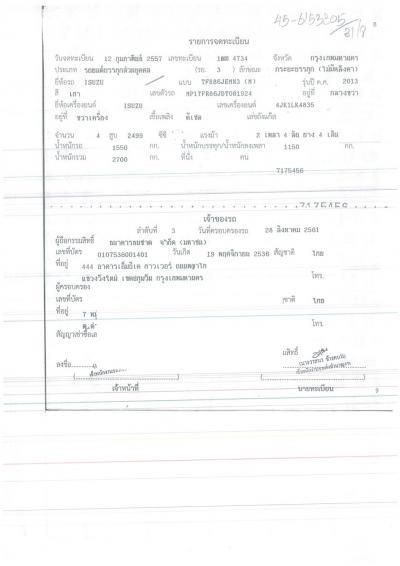 45-6153205
21/8
8
รายการจดทะเบียน
วันจดทะเบียน 12 กุมภาพันธ์ 2557 เลขทะเบียน 4734 จังหวัด กรุงเทพมหานคร
ประเภท รถยนต์บรรทุกส่วนบุคคล (รย. 3 ) ลักษณะ กระบะบรรทุก (ไม่มีหลังคา)
ยี่ห้อรถ ISUZU แบบ TFR86JDHN3 (M) รุ่นปี ค.ศ. 2013
สี เทา เลขตัวรถ MP1TFR86JDT081924 อยู่ที่ กลางขวา
ยี่ห้อเครื่องยนต์ ISUZU เลขเครื่องยนต์ 4JK1LR4835
อยู่ที่ ขวาเครื่อง เชื้อเพลิง ดีเซล เลขถังแก๊ส
จำนวน 4 สูบ 2499 ซีซี แรงม้า 2 เพลา 4 ล้อ ยาง 4 เส้น
น้ำหนักรถ 1550 กก. น้ำหนักบรรทุก/น้ำหนักลงเพลา 1150 กก.
น้ำหนักรวม 2700 กก. ที่นั่ง คน
7175456
7175456
เจ้าของรถ
ลำดับที่ 3 วันที่ครอบครองรถ 28 สิงหาคม 2561
ผู้ถือกรรมสิทธิ์ ธนาคารธนชาต จำกัด (มหาชน)
เลขที่บัตร 0107536001401 วันเกิด 19 พฤศจิกายน 2536 สัญชาติ ไทย
ที่อยู่ 444 อาคารเอ็มบีเค ทาวเวอร์ ถนนพญาไท
แขวงวังใหม่ เขตปทุมวัน กรุงเทพมหานคร โทร.
ผู้ครอบครอง
เลขที่บัตร ชาติ ไทย
ที่อยู่ 7 หมู่
ต. โทร.
สัญญาเช่าซื้อเล
ลงชื่อ
เจ้าหน้าที่ นายทะเบียน
9